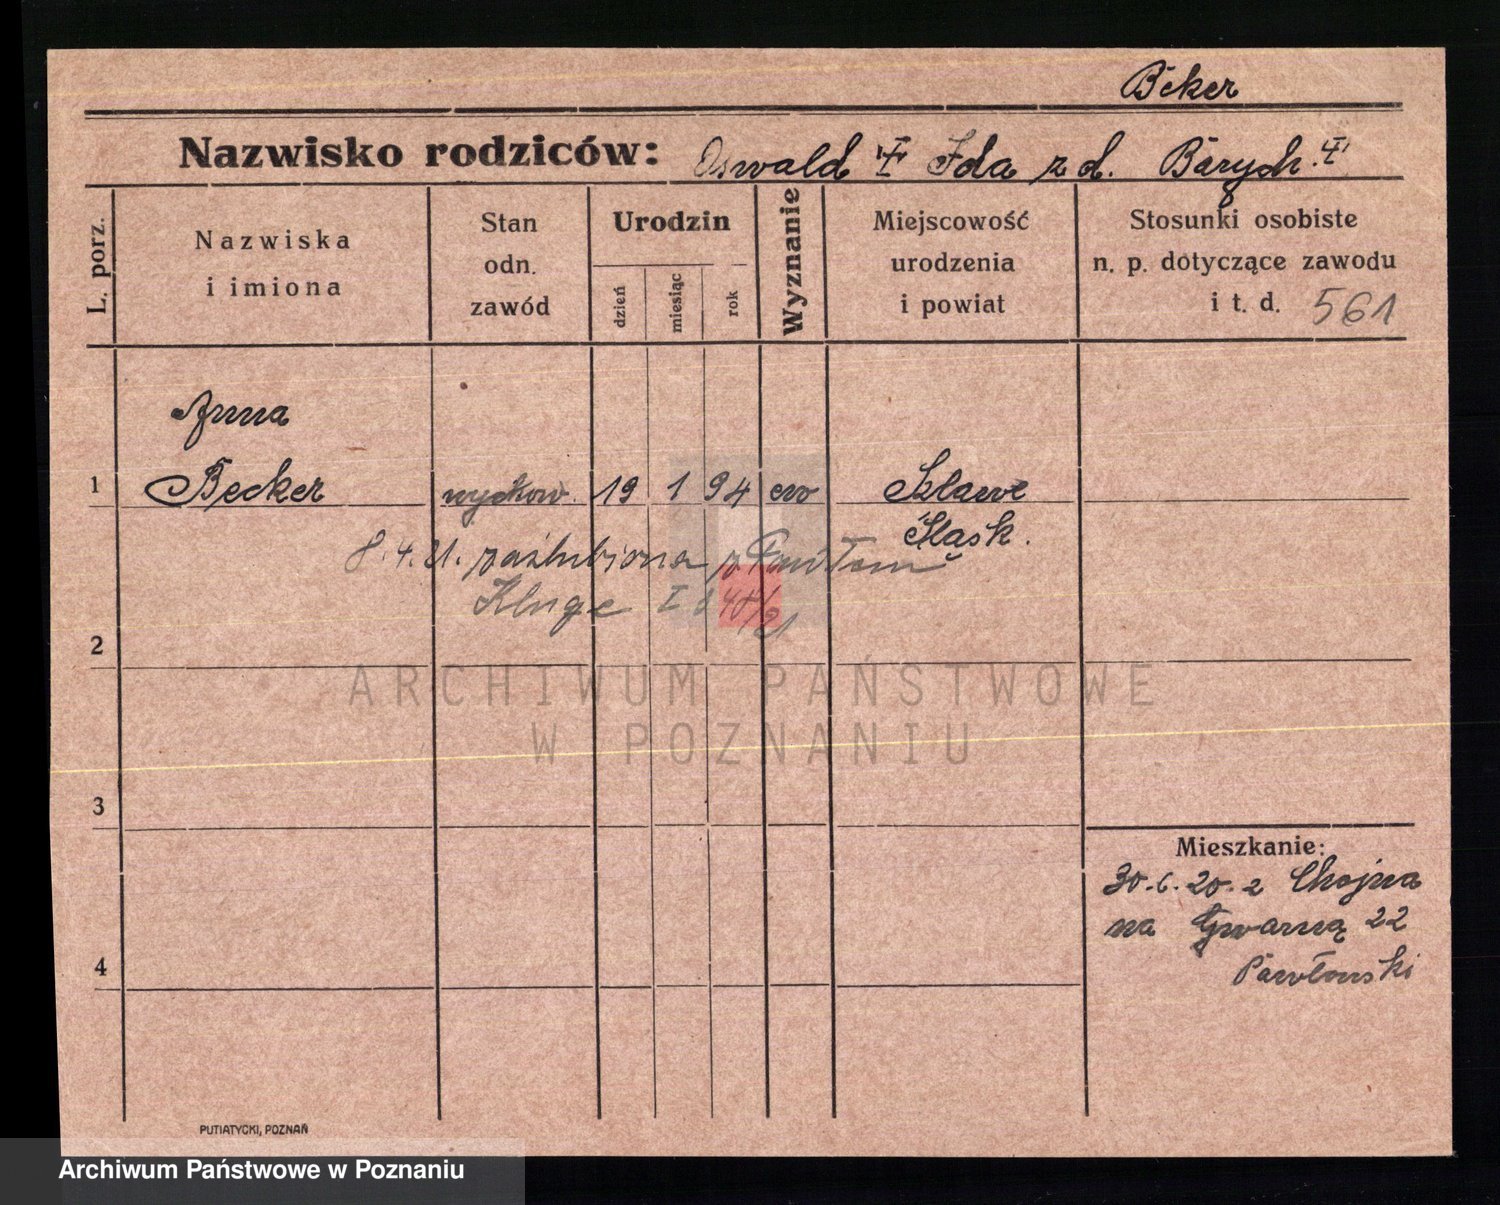 Beker
Nazwisko rodziców: Oswald † Ida z d. Barych. †
L. porz.
Nazwiska
i imiona
Stan
odn.
zawód
Urodzin
dzień
miesiąc
rok
Wyznanie
Miejscowość
urodzenia
i powiat
Stosunki osobiste
n. p. dotyczące zawodu
i t. d. 561
Anna
1 Becker wychow. 19 1 94 ew Sława
Śląsk.
8.4.21. zaślubiona z Pawłem
Kluge I
2
ARCHIWUM PAŃSTWOWE
W POZNANIU
3
Mieszkanie:
30.6.20. z Chojna
na Gwarną 22
4
Pawłowski
PUTIATYCKI, POZNAŃ
Archiwum Państwowe w Poznaniu